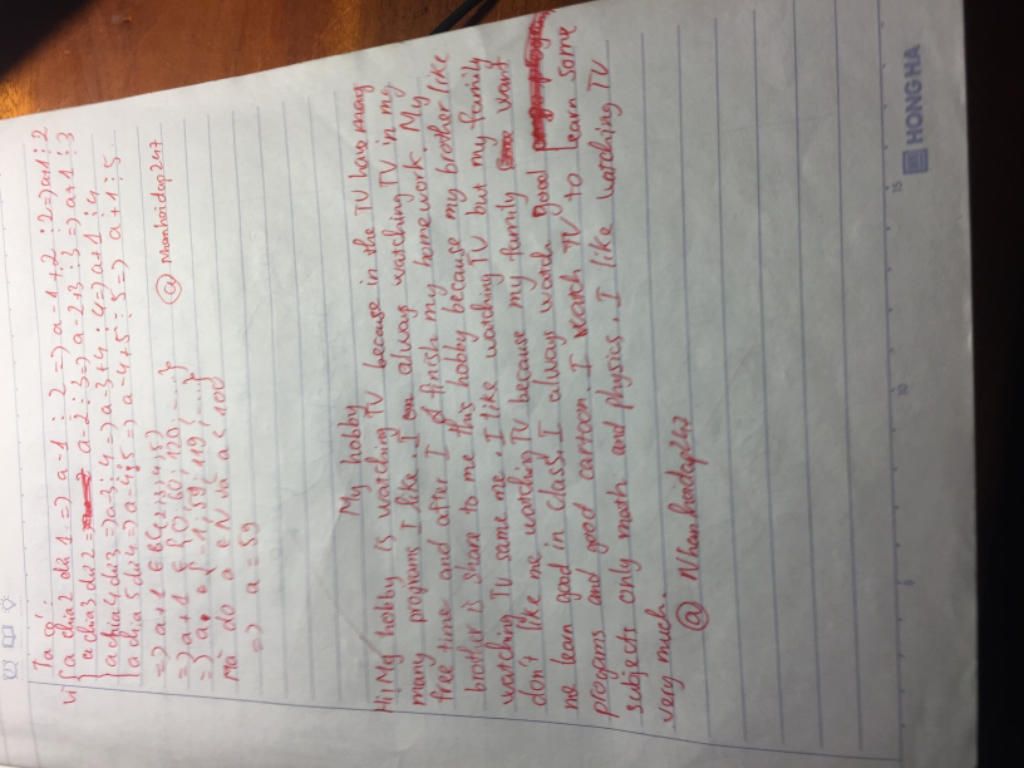 Ta có:
vì { a chia 2 dư 1 => a-1 ⋮ 2 => a-1+2 ⋮ 2 => a+1 ⋮ 2
a chia 3 dư 2 => a-2 ⋮ 3 => a-2+3 ⋮ 3 => a+1 ⋮ 3
a chia 4 dư 3 => a-3 ⋮ 4 => a-3+4 ⋮ 4 => a+1 ⋮ 4
a chia 5 dư 4 => a-4 ⋮ 5 => a-4+5 ⋮ 5 => a+1 ⋮ 5
=> a+1 ∈ BC(2;3;4;5)
=> a+1 ∈ {0; 60; 120; ....}
@ Manhoidap247
=> a ∈ {-1; 59; 119; ....}
mà do a ∈ N và a < 100
=> a = 59
My hobby
Hi! My hobby is watching TV because in the TV have many
many programs I like. I always watching TV in my
free time and after I finish my homework. My
brother is share to me this hobby because my brother like
watching TV same me. I like watching TV but my family
don't like me watching TV because my family want
me learn good in class. I always watch good
progams and good cartoon. I watch TV to learn some
subjects only math and physics. I like watching TV
very much.
@ Nhanhoidap247
HONG HA
5
10
15